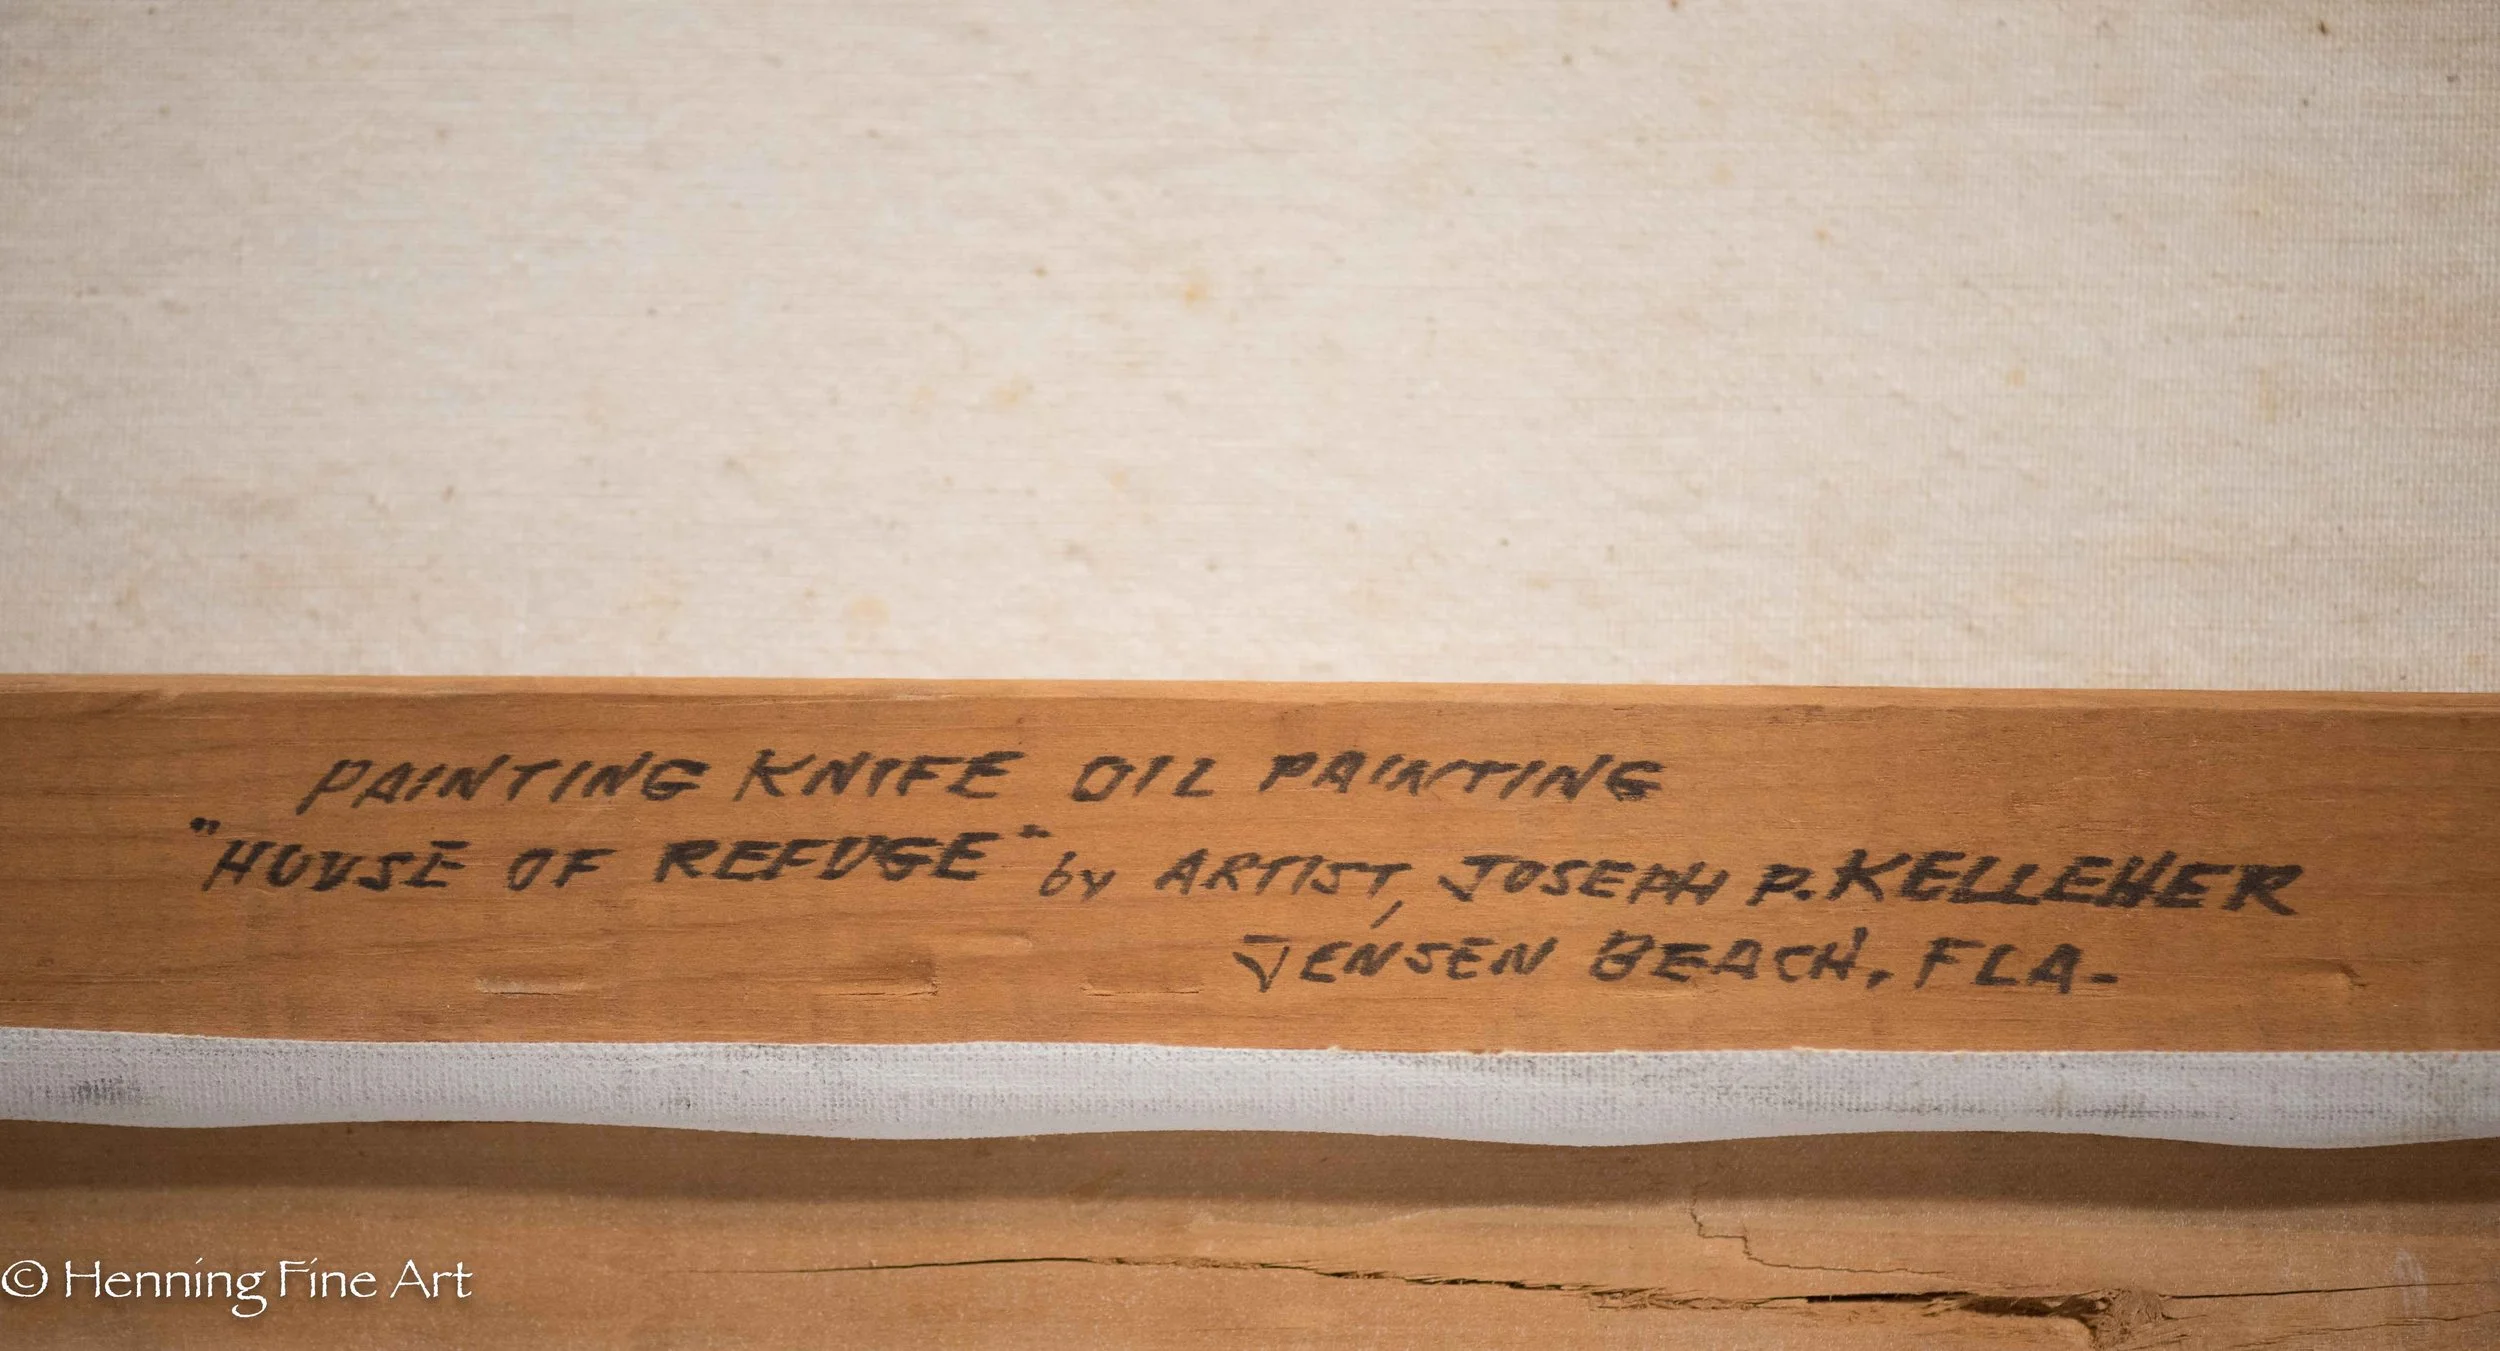 PAINTING KNIFE OIL PAINTING
"HOUSE OF REFUGE" by ARTIST, JOSEPH P. KELLEHER
JENSEN BEACH, FLA.
© Henning Fine Art